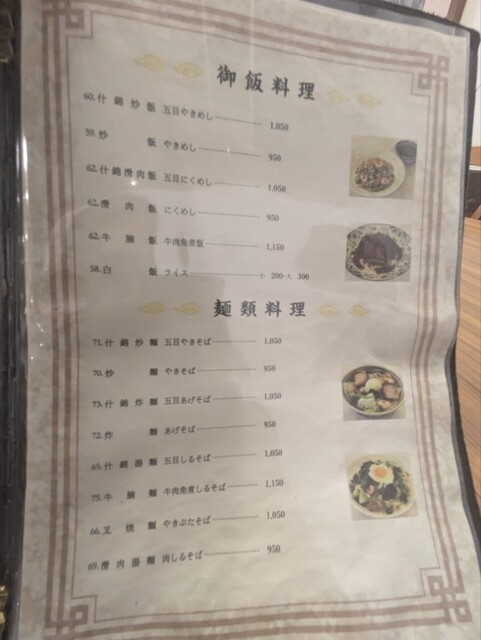 御飯料理
60. 什錦炒飯 五目やきめし 1,050
59. 炒飯 やきめし 950
62. 什錦滑肉飯 五目にくめし 1,050
62. 滑肉飯 にくめし 950
62. 牛腩飯 牛肉角煮飯 1,150
58. 白飯 ライス 小 200・大 300
麺類料理
71. 什錦炒麺 五目やきそば 1,050
70. 炒麺 やきそば 950
73. 什錦炸麺 五目あげそば 1,050
72. 炸麺 あげそば 950
65. 什錦湯麺 五目しるそば 1,050
75. 牛腩麺 牛肉角煮しるそば 1,150
66. 叉焼麺 やきぶたそば 1,050
69. 滑肉湯麺 肉しるそば 950